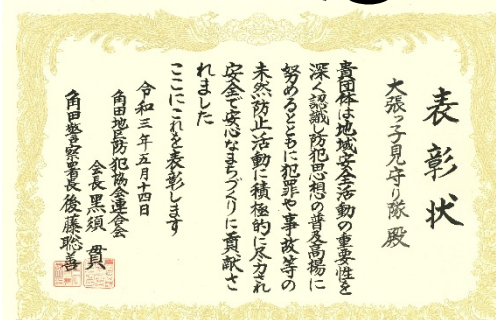 表彰状
大張っ子見守り隊 殿
貴団体は地域安全活動の重要性を
深く認識し防犯思想の普及高揚に
努めるとともに犯罪や事故等の
未然防止活動に積極的に尽力され
安全で安心なまちづくりに貢献さ
れました
ここにこれを表彰します
令和三年五月十四日
角田地区防犯協会連合会
会長 黒須 貫
角田警察署長 後藤聡善